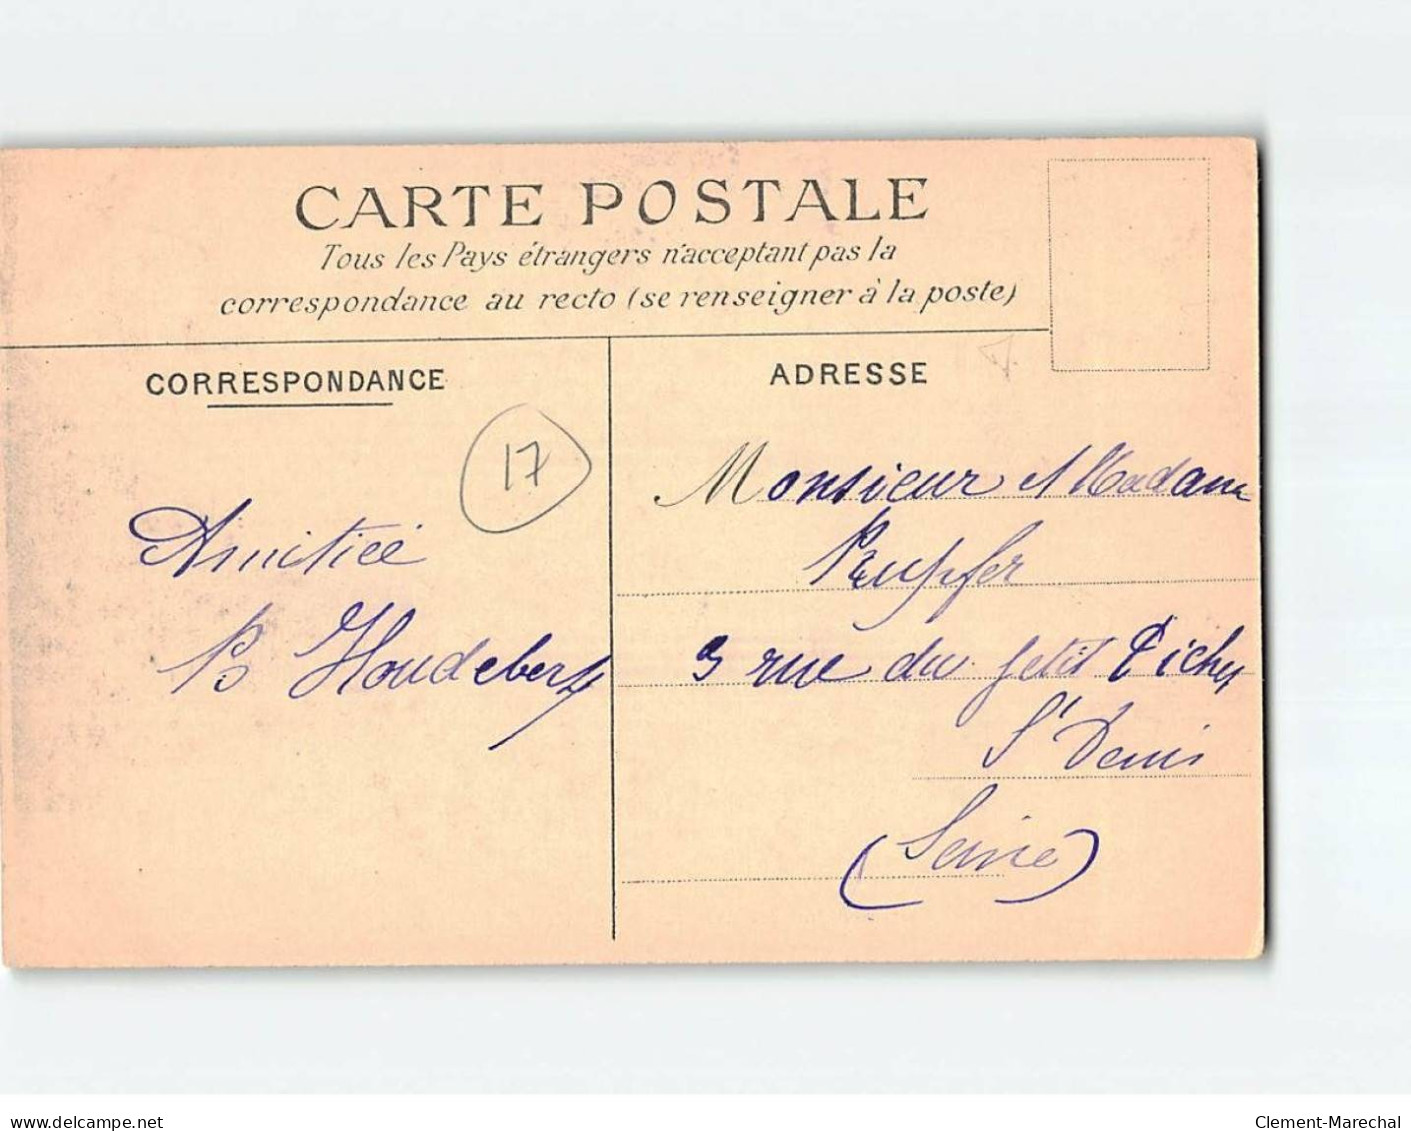 CARTE POSTALE
Tous les Pays étrangers n'acceptant pas la
correspondance au recto (se renseigner à la poste)
CORRESPONDANCE
ADRESSE
17
Amitiée
B Houdebert
Monsieur et Madame
3 rue du petit
St Denis
(Seine)
www.delcampe.net
Clement-Marechal